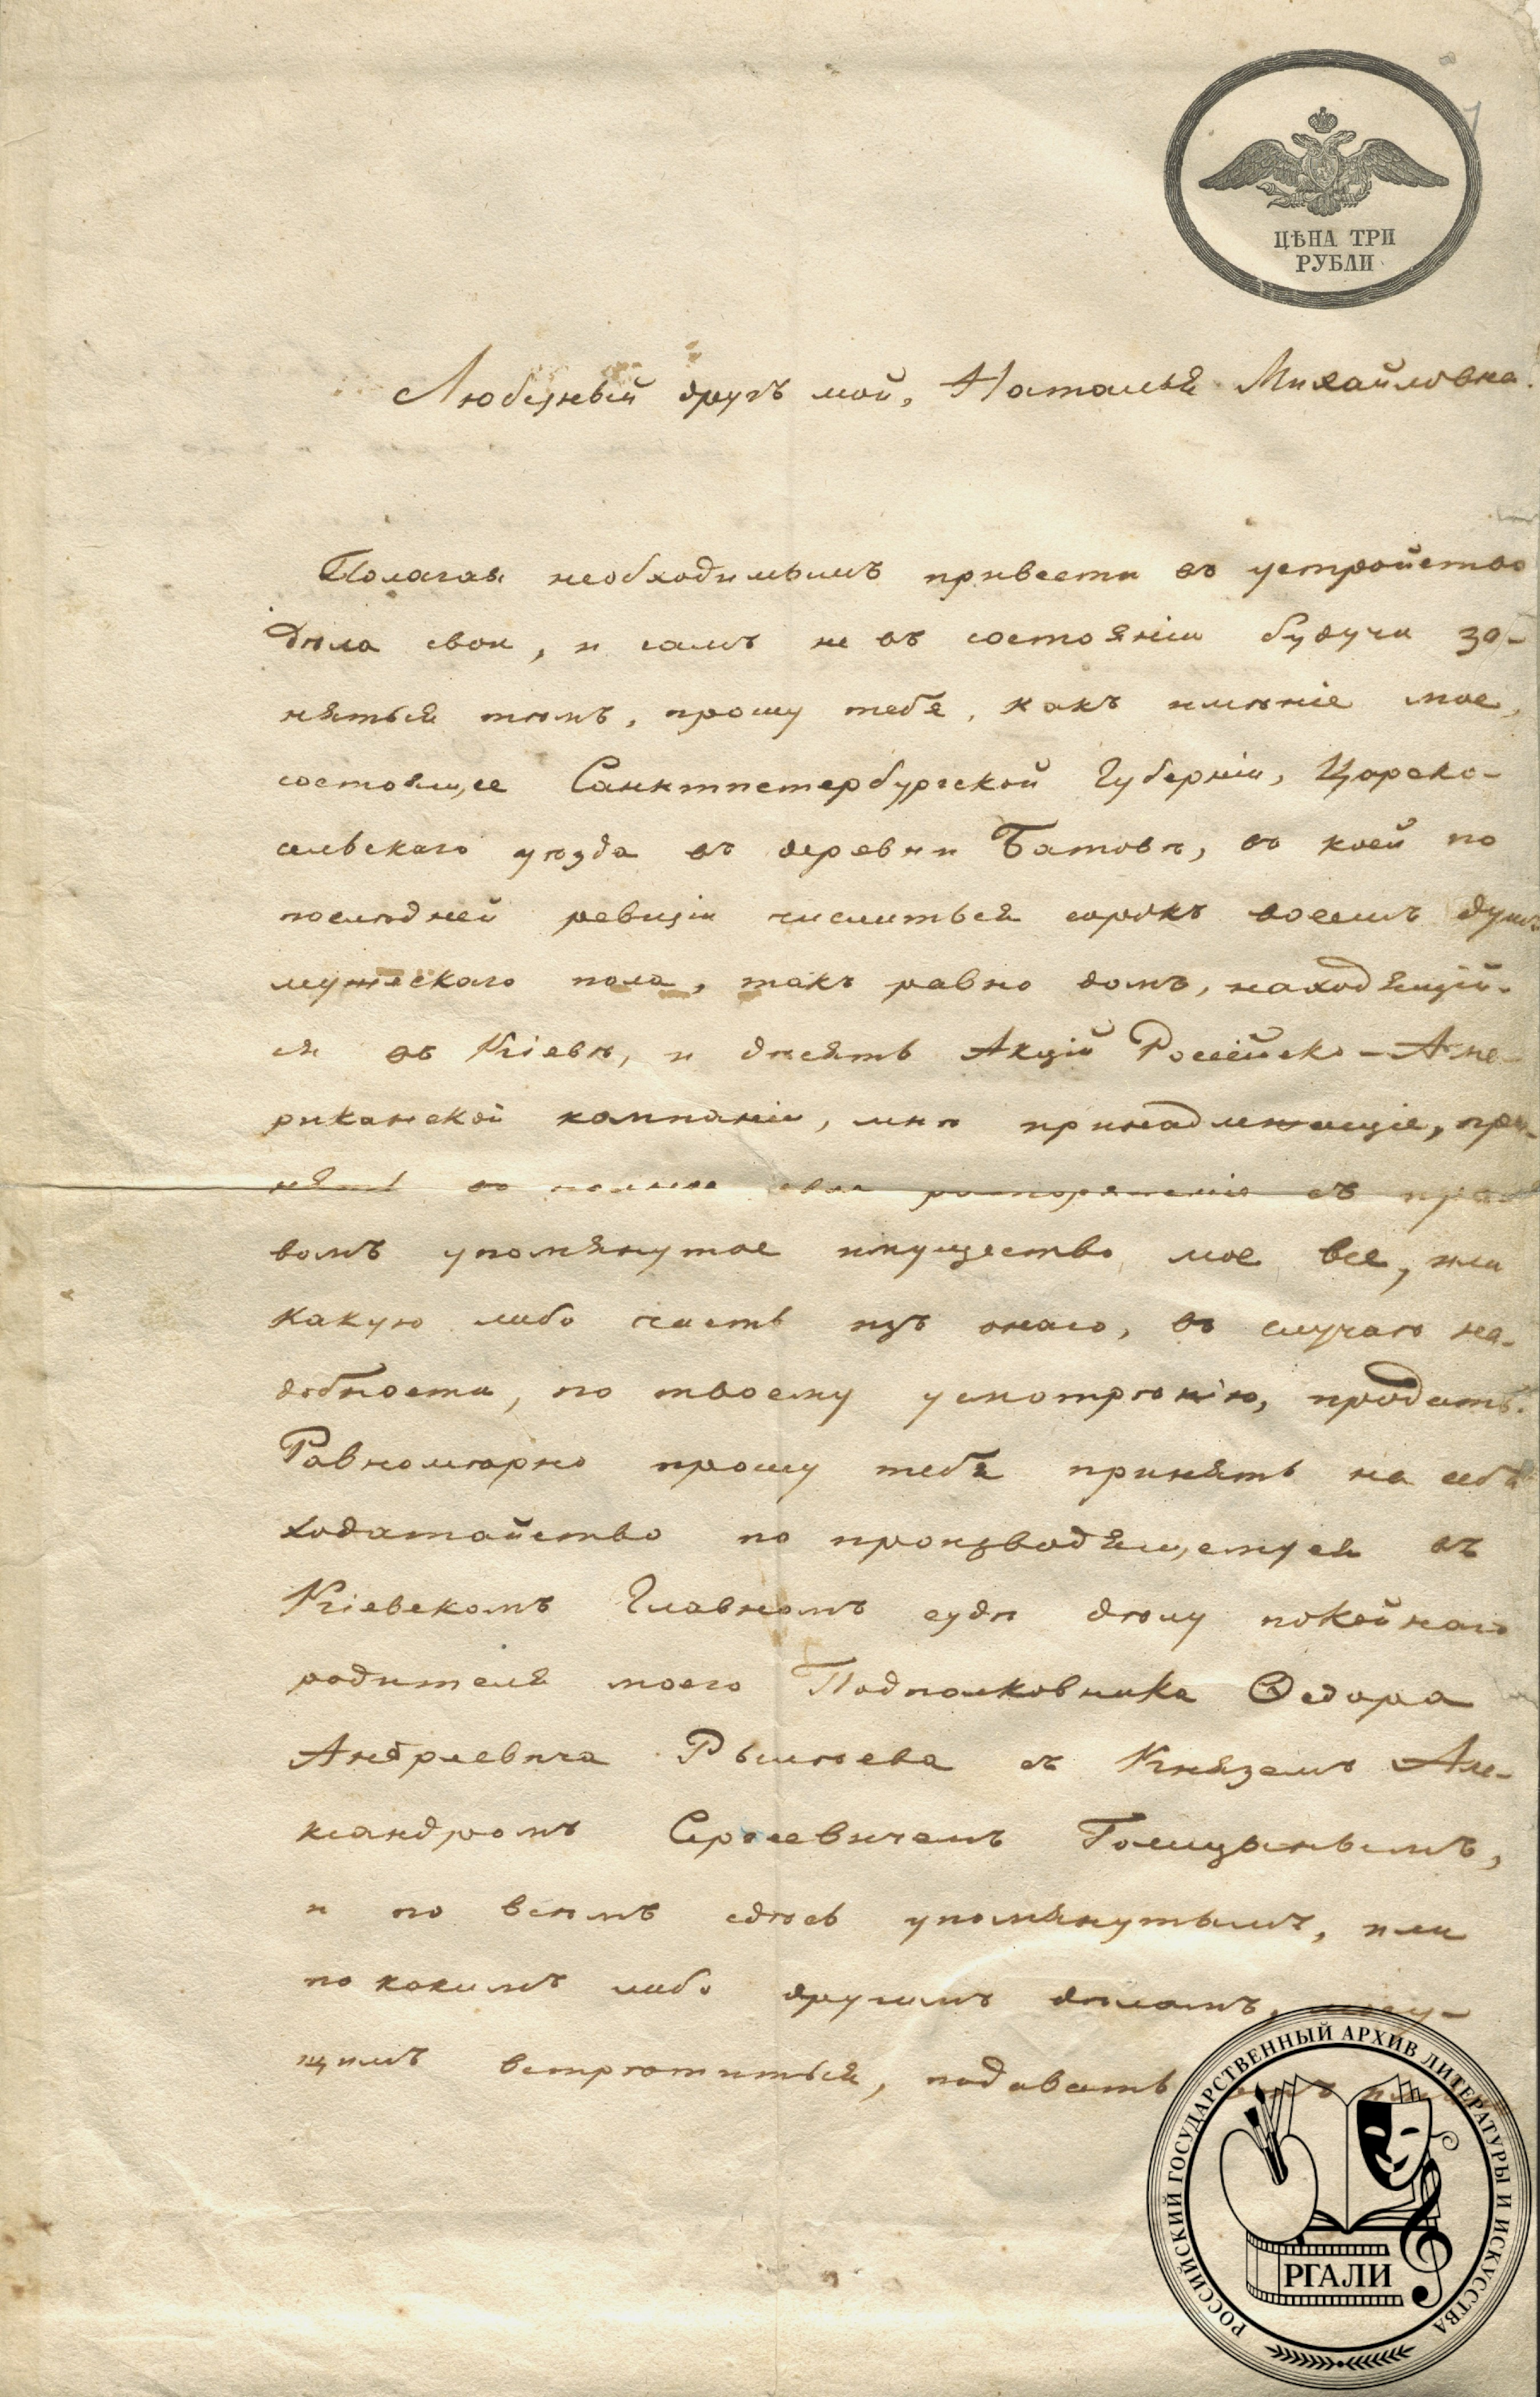 ЦѢНА ТРИ
РУБЛИ
Любезный другъ мой, Наталья Михайловна.
Полагая необходимымъ привести въ устройство
дѣла свои, и самъ не въ состояніи будучи за-
няться тѣмъ, прошу тебя, какъ имѣніе мое,
состоящее Санктпетербургской Губерніи, Царско-
сельскаго уѣзда въ деревни Батовѣ, въ коей по
послѣдней ревизіи числиться сорокъ восемъ душъ
мужескаго пола, такъ равно домъ, находящій-
ся въ Кіевѣ, и десять Акцій Россійско-Аме-
риканской компаніи, мнѣ принадлежащіе, при-
нять въ полное свое распоряженіе съ пра-
вомъ упомянутое имущество мое все, или
какую либо часть изъ онаго, въ случаѣ на-
добности, по твоему усмотрѣнію, продать.
Равномѣрно прошу тебя принять на себя
ходатайство по производящемуся въ
Кіевскомъ Главномъ судѣ дѣлу покойнаго
родителя моего Подполковника Ѳедора
Андреевича Рылѣева съ Княземъ Але-
ксандромъ Сергеевичемъ Голицынымъ,
и по всѣмъ сдѣсь упомянутымъ, или
по какимъ либо другимъ дѣламъ,
щимъ встрѣтиться, подавать
РОССИЙСКИЙ ГОСУДАРСТВЕННЫЙ АРХИВ ЛИТЕРАТУРЫ И ИСКУССТВА
РГАЛИ